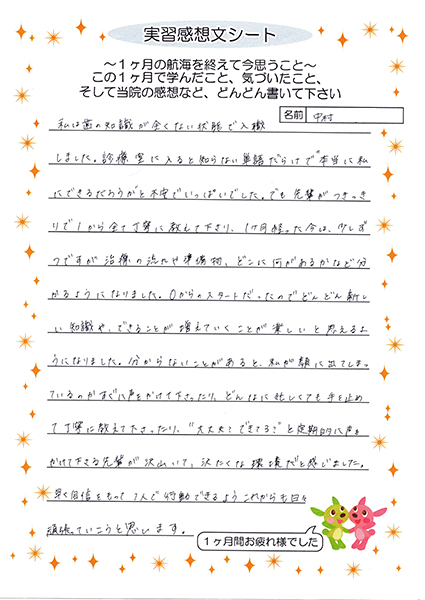 実習感想文シート
～１ヶ月の航海を終えて今思うこと～
この１ヶ月で学んだこと、気づいたこと、
そして当院の感想など、どんどん書いて下さい
名前 中村
私は歯の知識が全くない状態で入職
しました。診療室に入ると知らない単語だらけで本当に私
にできるだろうかと不安でいっぱいでした。でも先輩がつきっき
りで1から全て丁寧に教えて下さり、1ヶ月経った今は、少しず
つですが治療の流れや準備物、どこに何があるかなど分
かるようになりました。0からのスタートだったのでどんどん新し
い知識や、できることが増えていくことが楽しいと思えるよ
うになりました。分からないことがあると、私が顔に出てしまっ
ているのかすぐに声をかけて下さったり、どんなに忙しくても手を止め
て丁寧に教えて下さったり、“大丈夫？できてる？”と定期的に声を
かけて下さる先輩が沢山いて、決たくな環境だと感じました。
早く自信をもって1人で行動できるようこれからも日々
頑張っていこうと思います。
１ヶ月間お疲れ様でした